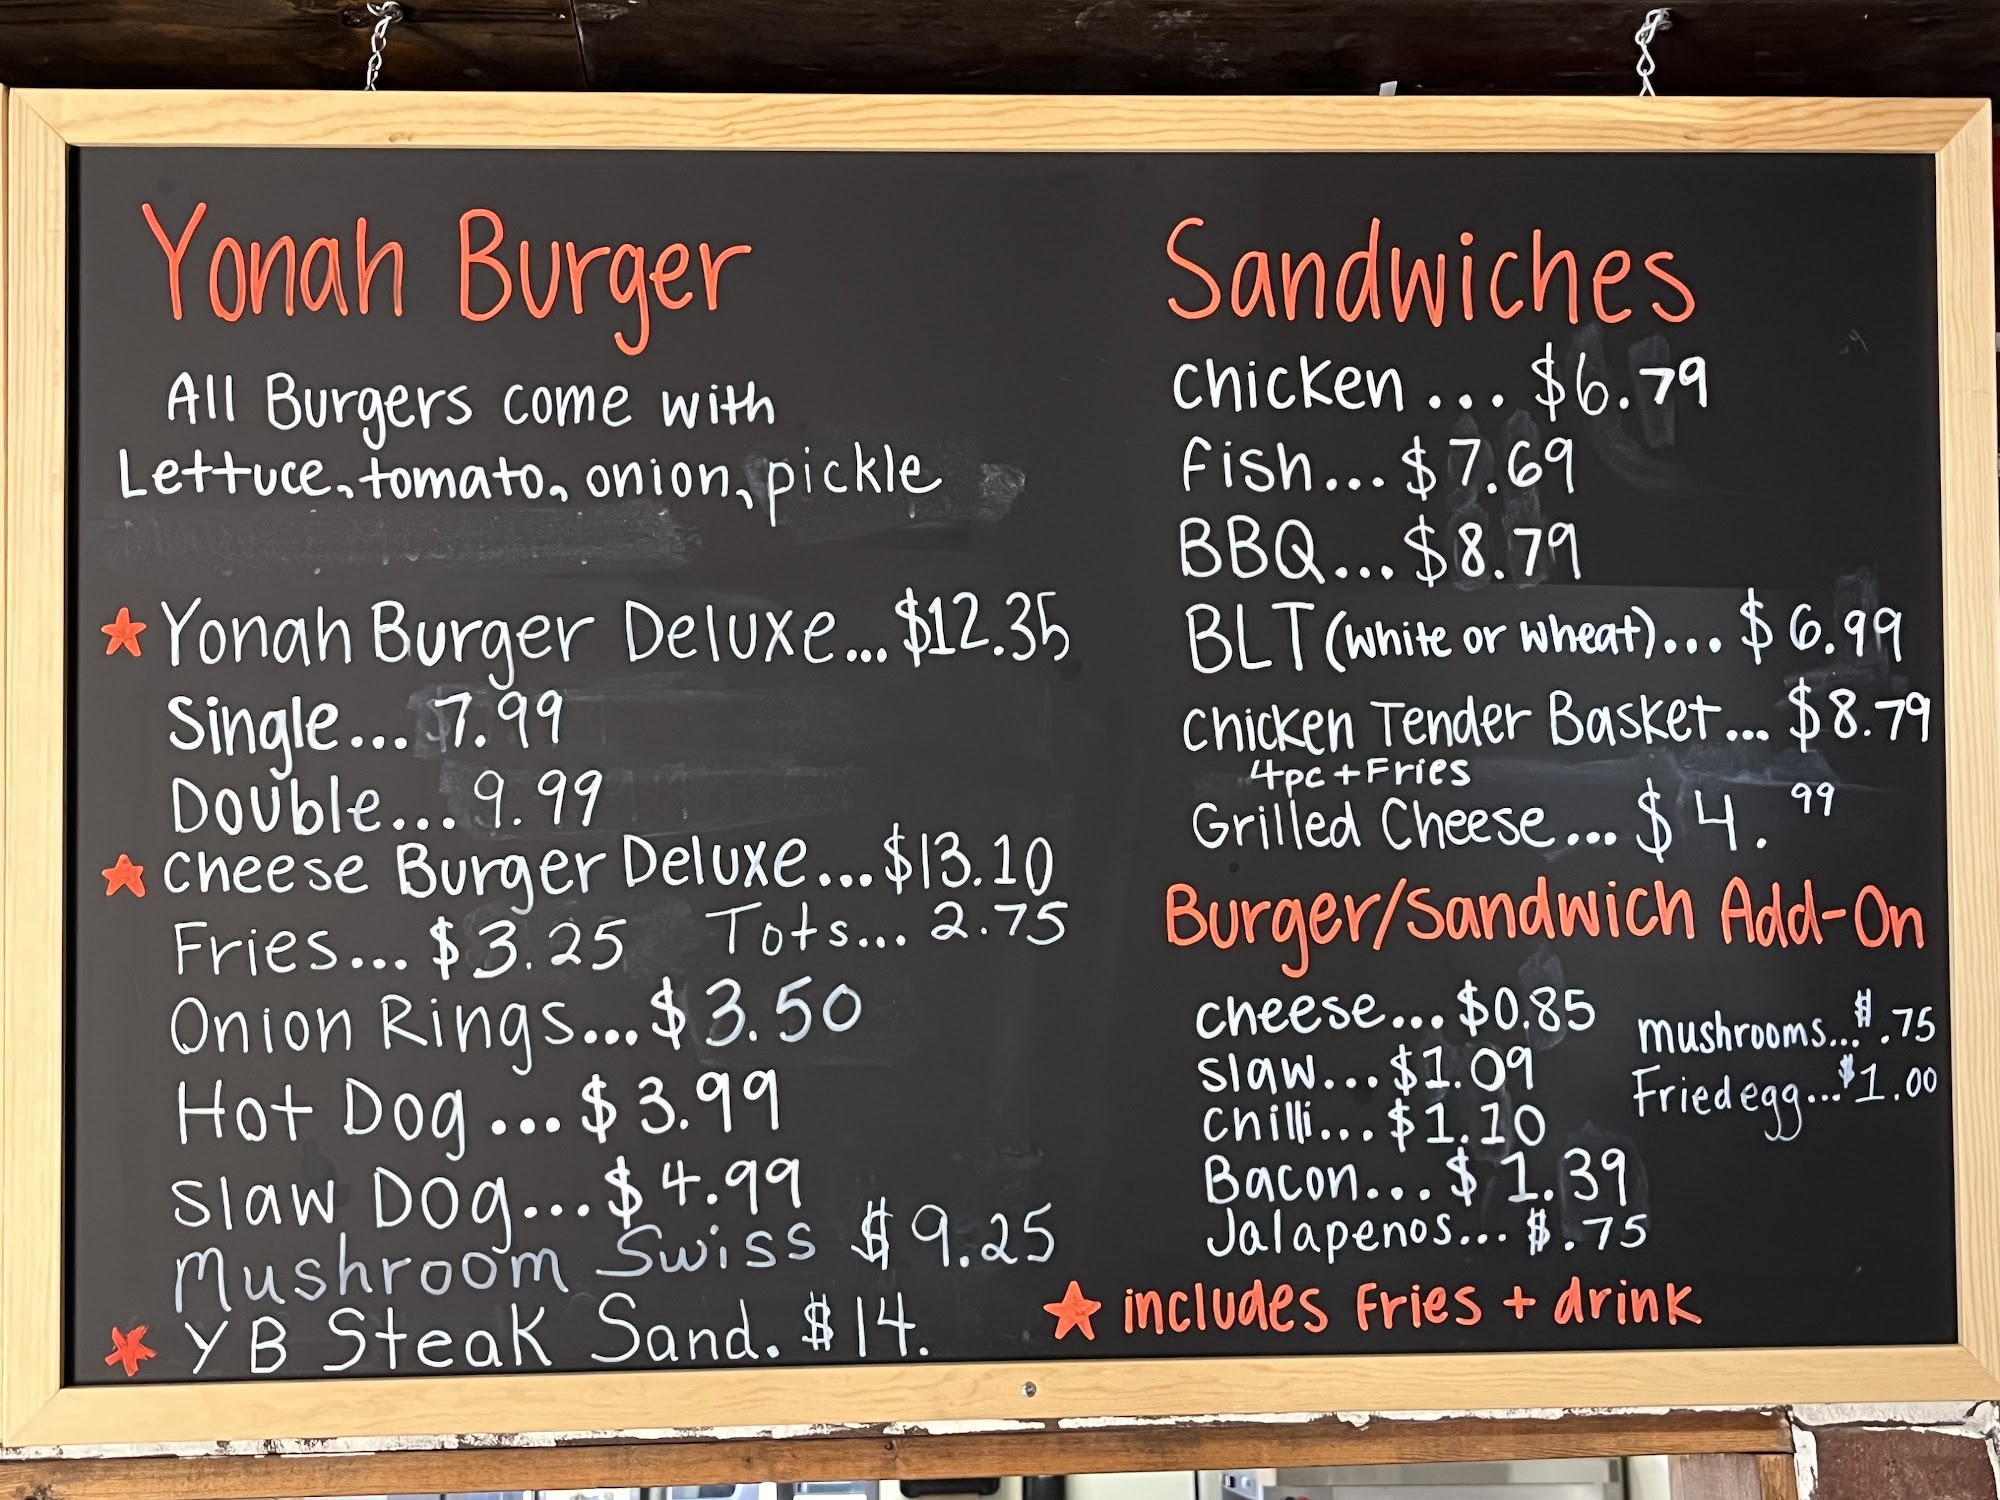 Yonah Burger
All Burgers come with
Lettuce, tomato, onion, pickle
★ Yonah Burger Deluxe... $12.35
Single... 7.99
Double... 9.99
★ Cheese Burger Deluxe... $13.10
Fries... $3.25 Tots... 2.75
Onion Rings... $3.50
Hot Dog ... $3.99
Slaw Dog... $4.99
Mushroom Swiss $9.25
★ YB Steak Sand. $14.
Sandwiches
Chicken ... $6.79
Fish... $7.69
BBQ... $8.79
BLT (white or wheat)... $6.99
Chicken Tender Basket... $8.79
4pc + Fries
Grilled Cheese... $4.99
Burger/Sandwich Add-On
Cheese... $0.85
Slaw... $1.09
Chilli... $1.10
Bacon... $1.39
Jalapenos... $.75
mushrooms... $.75
Fried egg... $1.00
★ includes Fries + drink